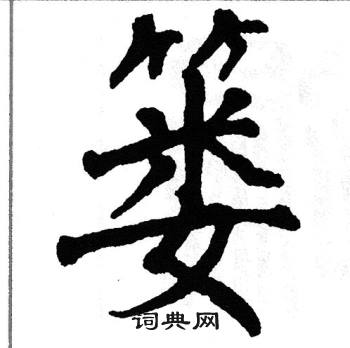 篓
词典网